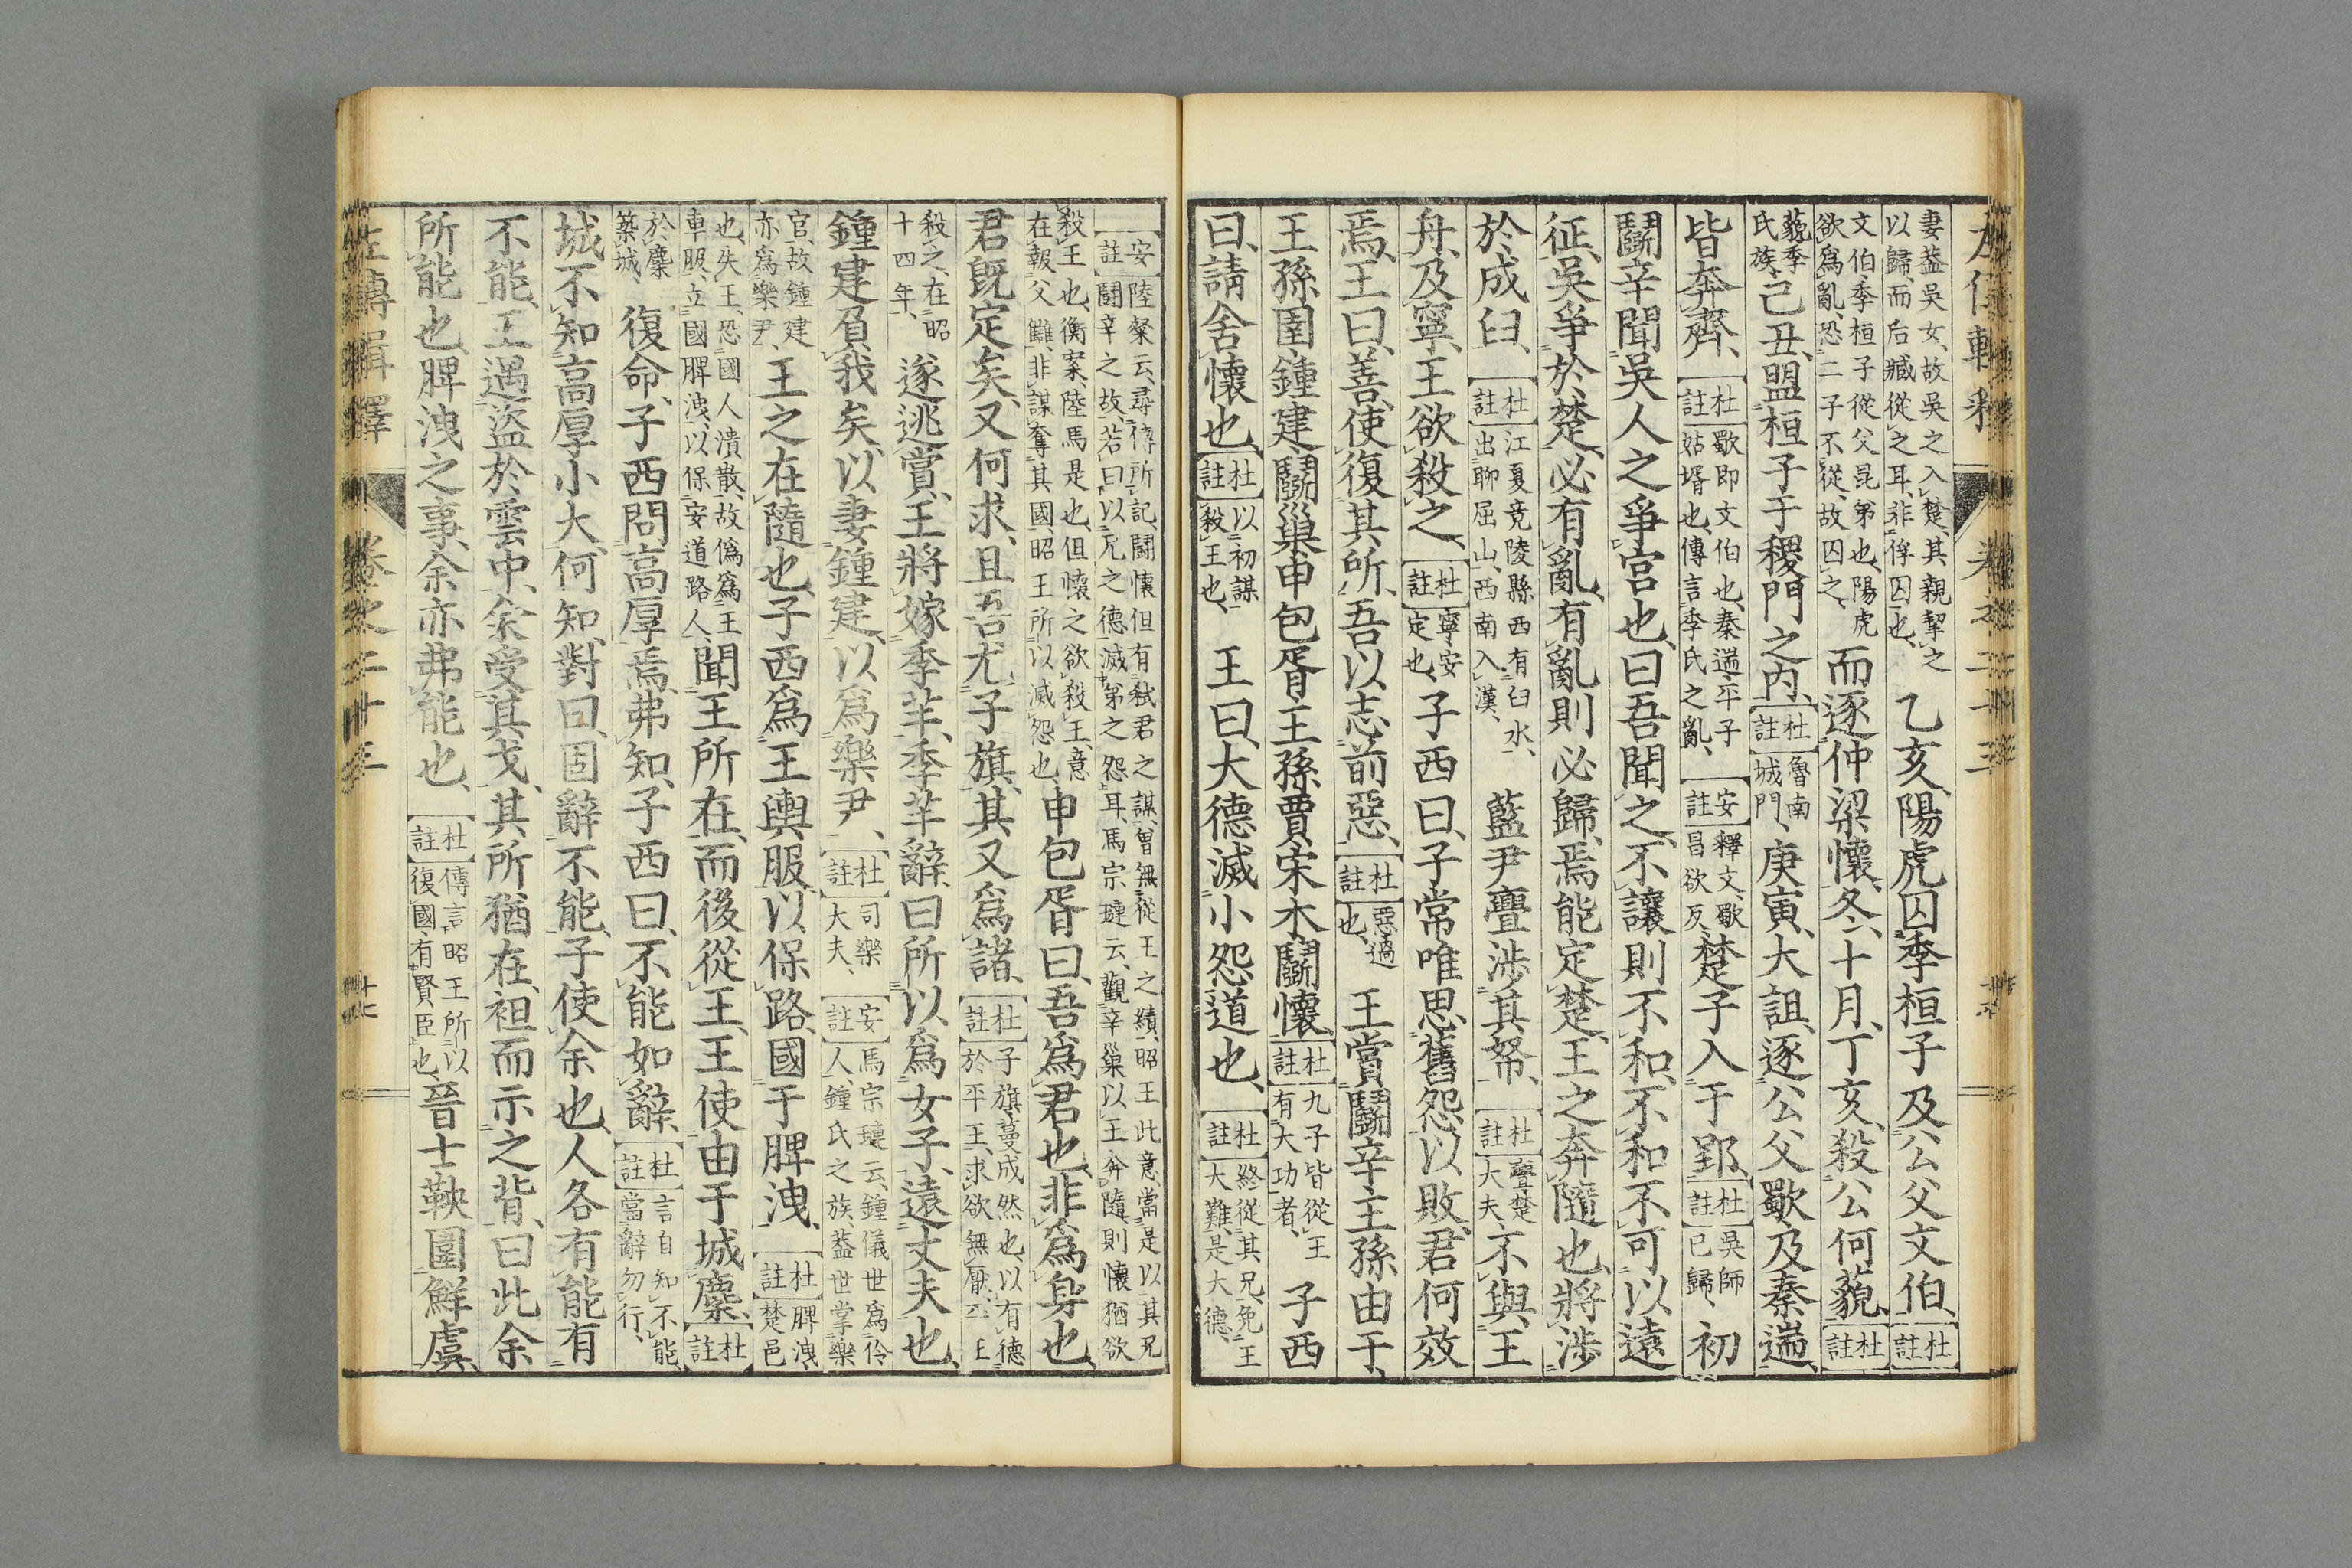 妻葢吳女、故吳之入楚其親挈之
以歸、而后臧從之耳、非俘囚也、
乙亥、陽虎囚季桓子及公父文伯、杜註
文伯、季桓子從父昆弟也、陽虎
欲爲亂、恐二子不從、故囚之、
而逐仲梁懷、冬、十月、丁亥、殺公何藐、杜註
藐季
氏族、
己丑、盟桓子于稷門之內、杜註魯南
城門、
庚寅、大詛、逐公父歜及秦遄、
皆奔齊、杜註歜即文伯也、秦遄、平子
姑壻也、傳言季氏之亂、
安註釋文、歜
昌欲反、
楚子入于郢、杜註吳師
已歸、
初
鬬辛聞吳人之爭宮也、曰吾聞之、不讓則不和、不和不可以遠
征、吳爭於楚、必有亂、有亂則必歸、焉能定楚、王之奔隨也、將涉
於成臼、杜註江夏竟陵縣西有臼水、
出聊屈山、西南入漢、
藍尹亹涉其帑、杜註亹楚
大夫、
不與王
舟、及寧、王欲殺之、杜註寧、安
定也、
子西曰、子常唯思舊怨以敗、君何效
焉、王曰、善、使復其所、吾以志前惡、杜註惡過
也、
王賞鬬辛王孫由于、
王孫圉鍾建鬬巢申包胥王孫賈宋木鬬懷、杜註九子皆從王
有大功者、
子西
曰、請舍懷也、杜註以初謀
殺王也、
王曰、大德滅小怨道也、杜註終從其兄、免王
大難、是大德、
安註陸粲云、尋傳所記、鬬懷但有弑君之謀、曾無從王之績、昭王此意、當是以其兄
鬬辛之故、若曰以兄之德滅弟之怨耳、馬宗璉云、觀辛巢以王奔隨、則懷猶欲
殺王也、衡案、陸馬是也、但懷之欲殺王、意
在報父讎、非謀奪其國、昭王所以滅怨也、
申包胥曰、吾爲君也、非爲身也、
君既定矣、又何求、且吾尤子旗、其又爲諸、杜註子旗、蔓成然也、以有德
於平王、求欲無厭、平王
殺之、在昭
十四年、
遂逃賞、王將嫁季芊、季芊辭曰、所以爲女子、遠丈夫也、
鍾建負我矣、以妻鍾建、以爲樂尹、杜註司樂
大夫、
安註馬宗璉云、鍾儀世爲伶
人、鍾氏之族、葢世掌樂
官、故鍾建
亦爲樂尹、
王之在隨也、子西爲王輿服以保路、國于脾洩、杜註脾洩、
楚邑
也、失王、恐國人潰散、故僞爲王
車服、立國脾洩、以保安道路人、
聞王所在、而後從王、王使由于城麇、杜註
於麇
築城、
復命、子西問高厚焉、弗知、子西曰、不能如辭、杜註言自知不能、
當辭勿行、
城不知高厚小大、何知、對曰、固辭不能、子使余也、人各有能有
不能、王遇盜於雲中、余受其戈、其所猶在、袒而示之背、曰此余
所能也、脾洩之事、余亦弗能也、杜註傳言昭王所以
復國、有賢臣也、
晉士鞅圍鮮虞、
左傳輯釋　卷之二十三　廿七